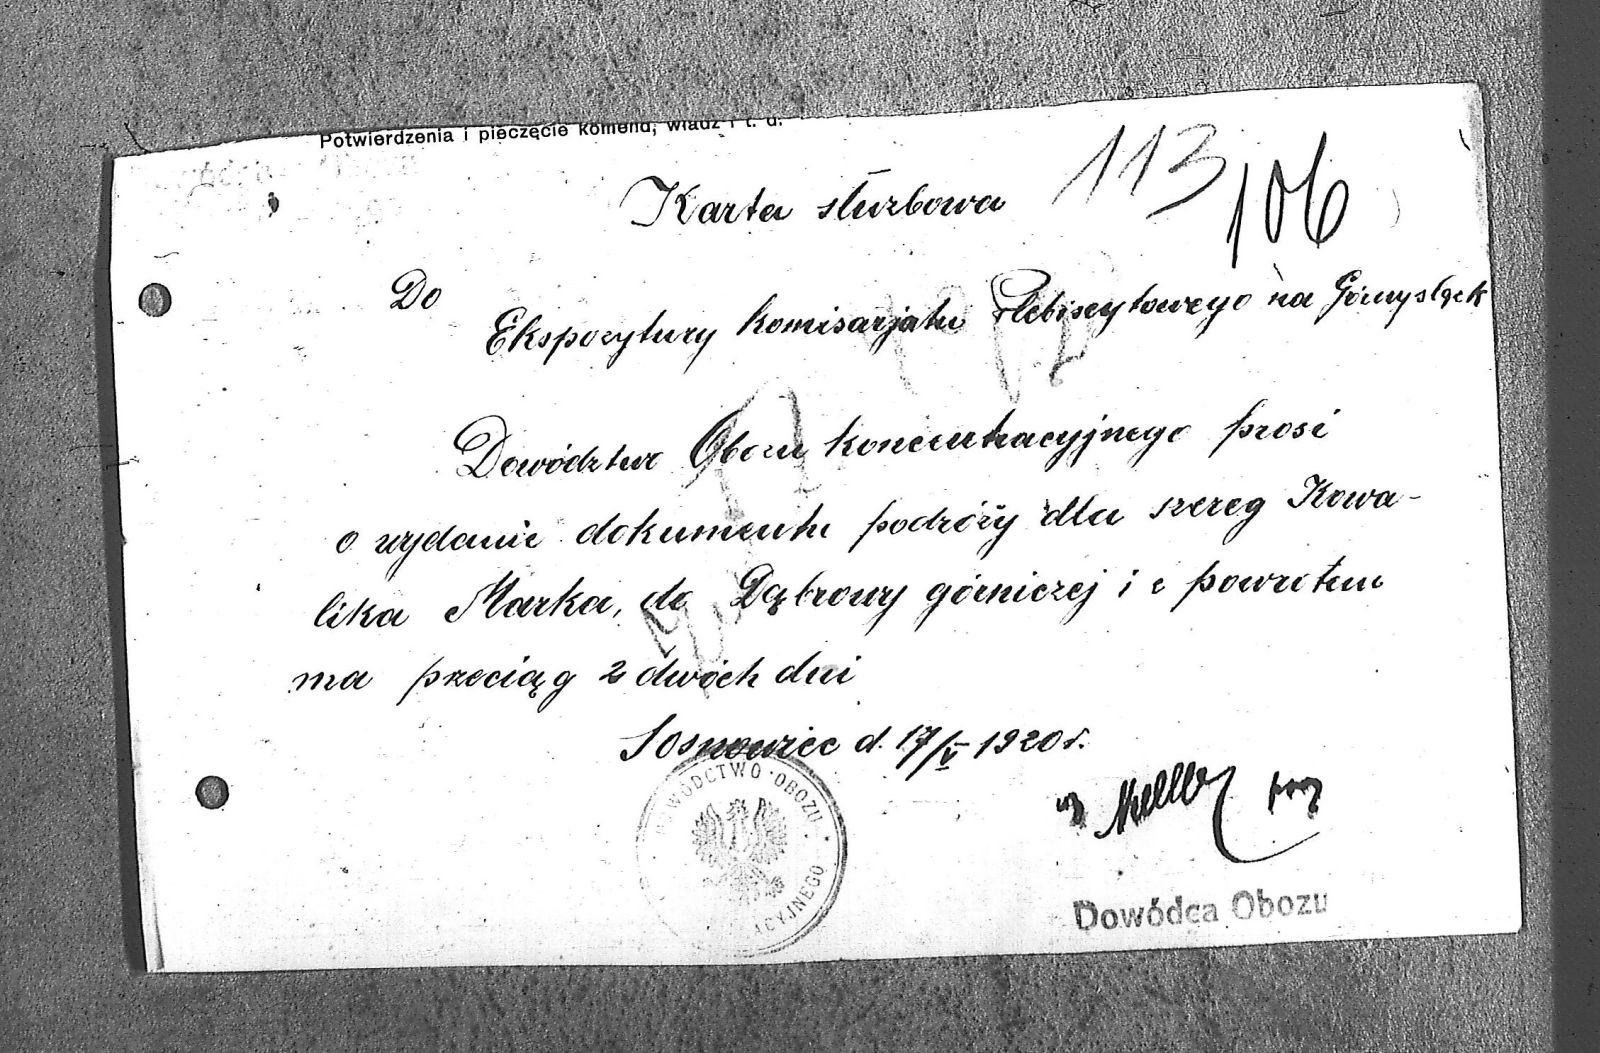 Potwierdzenia i pieczęcie komend, władz i t. d.
113
106
Karta służbowa
Do
Ekspozytury Komisarjatu Plebiscytowego na Górnyśląsk
Dowództwo Obozu koncentracyjnego prosi
o wydanie dokumentu podróży dla szereg Kowa-
lika Marka, do Dąbrowy górniczej i z powrotem
na przeciąg 2 dwóch dni
Sosnowiec d. 17/V 1920 r.
DOWÓDCTWO OBOZU
ACYJNEGO
Dowódca Obozu